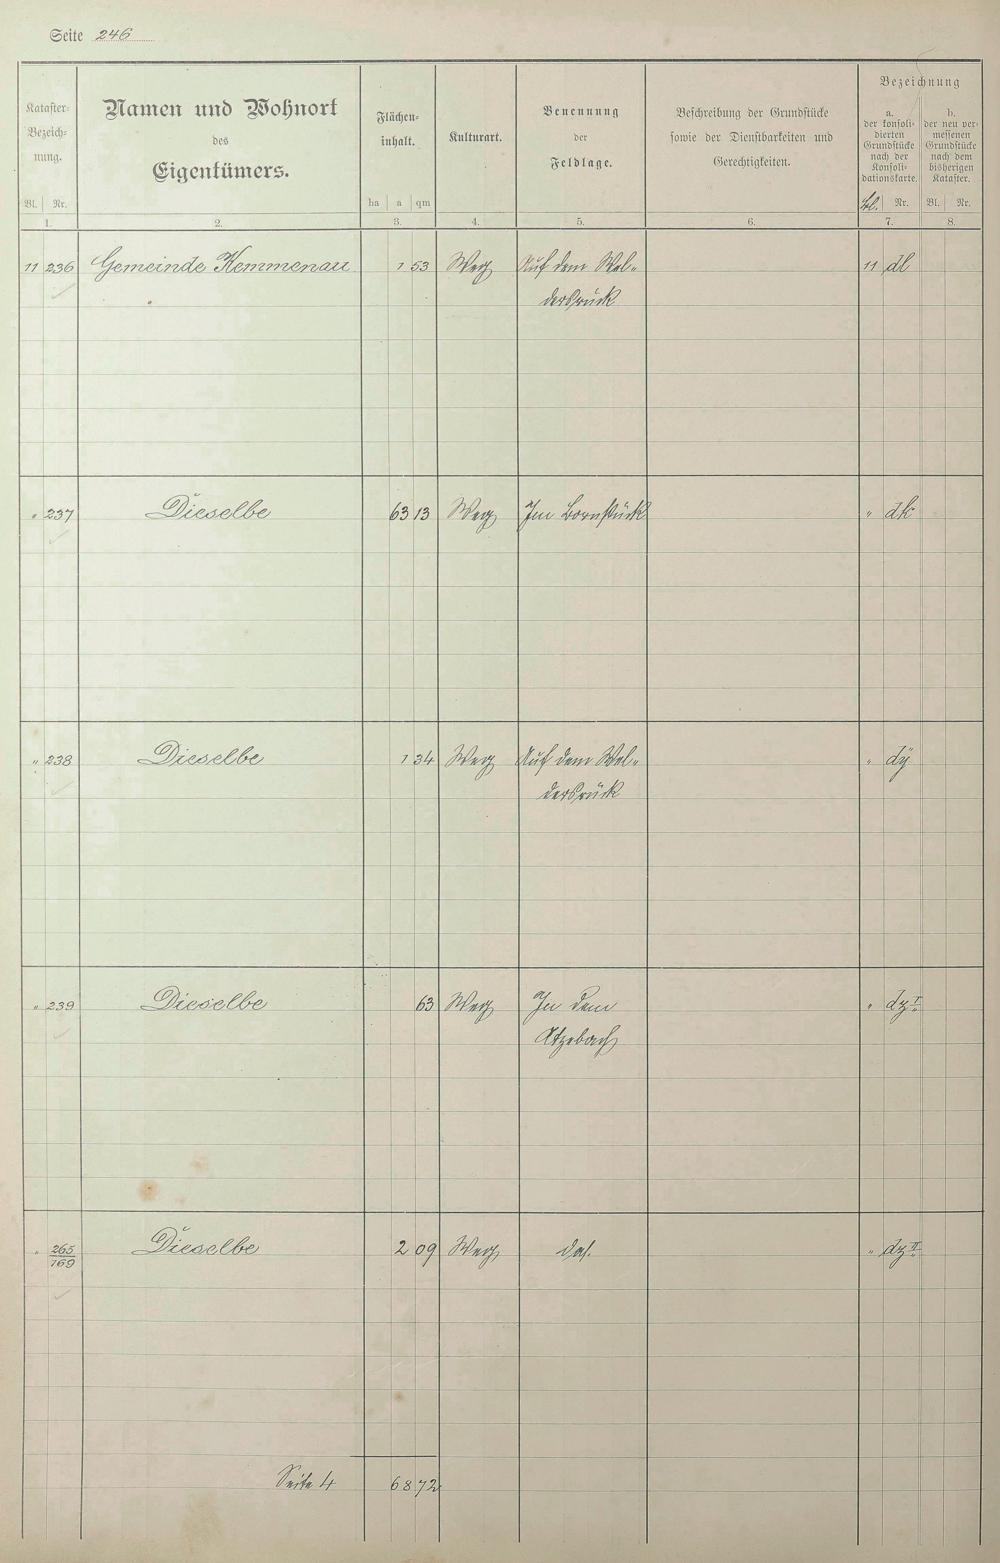 Seite 246
Kataster-Bezeichnung. Bl. Nr. 1.
Namen und Wohnort
des
Eigentümers.
2.
Flächeninhalt.
ha a qm
3.
Kulturart.
4.
Benennung
der
Feldlage.
5.
Beschreibung der Grundstücke
sowie der Dienstbarkeiten und
Gerechtigkeiten.
6.
Bezeichnung
a.
der konsoli-
dierten
Grundstücke
nach der
Konsoli-
dationskarte.
Bl. Nr.
7.
b.
der neu ver-
messenen
Grundstücke
nach dem
bisherigen
Kataster.
Bl. Nr.
8.
11 236 Gemeinde Kemmenau 1 53 Weg Auf dem Wel- 11 dl
dersrück
" 237 Dieselbe 63 13 Weg Im Bornstück " dk
" 238 Dieselbe 1 34 Weg Auf dem Wel- " dy
dersrück
" 239 Dieselbe 63 Weg In dem " dz I
Atzebach
" 265/169 Dieselbe 2 09 Weg das. " dz II
Seite 4 68 72